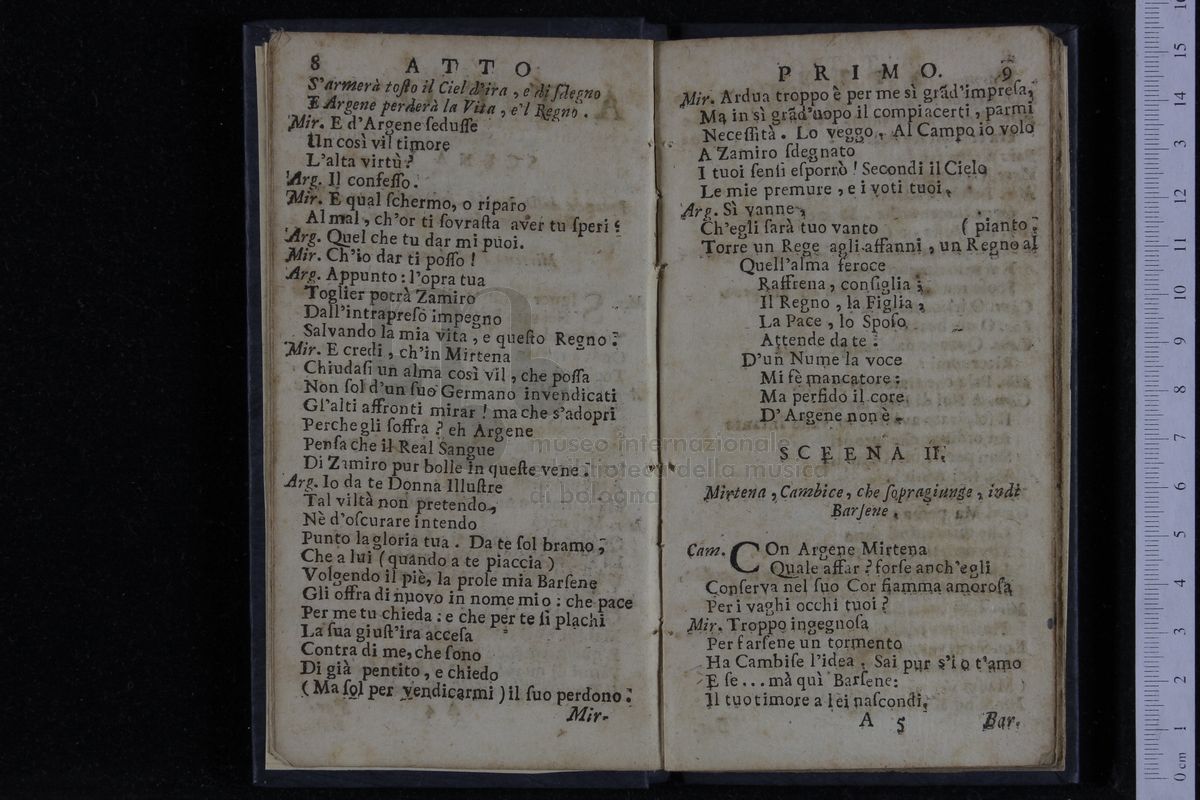 8 ATTO
S'armerà toſto il Ciel d'ira, e di ſdegno
E Argene perderà la Vita, e'l Regno.
Mir. E d'Argene ſeduſſe
Un così vil timore
L'alta virtù?
Arg. Il confeſſo.
Mir. E qual ſchermo, o riparo
Al mal, ch'or ti ſovraſta aver tu ſperi?
Arg. Quel che tu dar mi puoi.
Mir. Ch'io dar ti poſſo!
Arg. Appunto: l'opra tua
Toglier potrà Zamiro
Dall'intrapreſo impegno
Salvando la mia vita, e queſto Regno.
Mir. E credi, ch'in Mirtena
Chiudaſi un alma così vil, che poſſa
Non ſol d'un ſuo Germano invendicati
Gl'alti affronti mirar! ma che s'adopri
Perchegli ſoffra? eh Argene
Penſa che il Real Sangue
Di Zamiro pur bolle in queſte vene.
Arg. Io da te Donna Illuſtre
Tal viltà non pretendo,
Nè d'oſcurare intendo
Punto la gloria tua. Da te ſol bramo,
Che a lui (quando a te piaccia)
Volgendo il piè, la prole mia Barſene
Gli offra di nuovo in nome mio: che pace
Per me tu chieda: e che per te ſi plachi
La ſua giuſt'ira acceſa
Contra di me, che ſono
Di già pentito, e chiedo
(Ma ſol per vendicarmi) il ſuo perdono.
Mir.
PRIMO. 9
Mir. Ardua troppo è per me sì grãd'impreſa,
Ma in sì grãd'uopo il compiacerti, parmi
Neceſſità. Lo veggo. Al Campo io volo
A Zamiro ſdegnato
I tuoi ſenſi eſporrò! Secondi il Cielo
Le mie premure, e i voti tuoi.
Arg. Sì vanne,
Ch'egli ſarà tuo vanto (pianto.
Torre un Rege agli affanni, un Regno al
Quell'alma feroce
Raffrena, conſiglia;
Il Regno, la Figlia,
La Pace, lo Spoſo
Attende da te.
D'un Nume la voce
Mi fè mancatore:
Ma perfido il core
D'Argene non è.
SCEENA II.
Mirtena, Cambice, che ſopragiunge, indi
Barſene.
Cam. COn Argene Mirtena
Quale affar? forſe anch'egli
Conſerva nel ſuo Cor fiamma amoroſa
Per i vaghi occhi tuoi?
Mir. Troppo ingegnoſa
Per farſene un tormento
Ha Cambiſe l'idea. Sai pur s'io t'amo
E ſe... mà quì Barſene:
Il tuo timore a lei naſcondi.
A 5 Bar.
museo internazionale
biblioteca della musica
di bologna